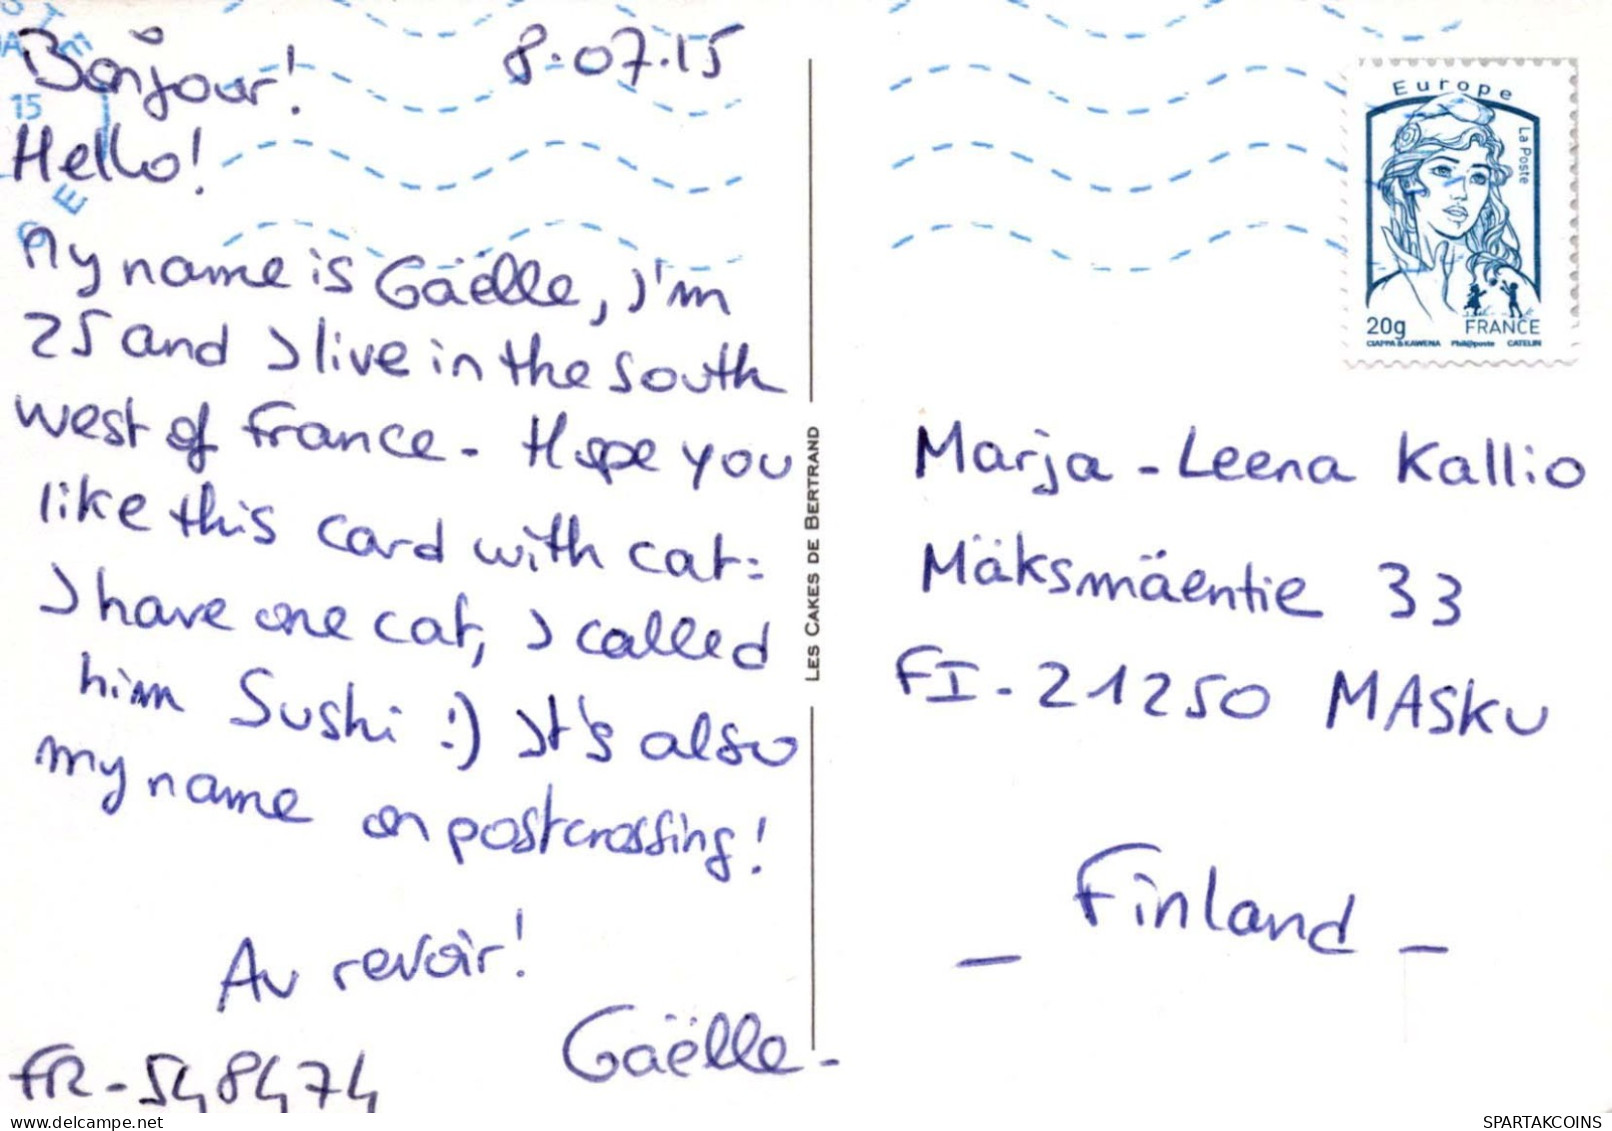 Bonjour!
8.07.15
Hello!
My name is Gaëlle, I'm
25 and I live in the south
west of France. Hope you
like this card with cat:
I have one cat, I called
him Sushi :) It's also
my name on postcrossing!
Au revoir!
Gaëlle-
FR-548474
LES CAKES DE BERTRAND
15
Europe
La Poste
20g
FRANCE
CIAPPA & KAWENA Phil@poste CATELIN
Marja-Leena Kallio
Mäksmäentie 33
FI-21250 MASKU
- Finland -
SPARTAKCOINS.COM